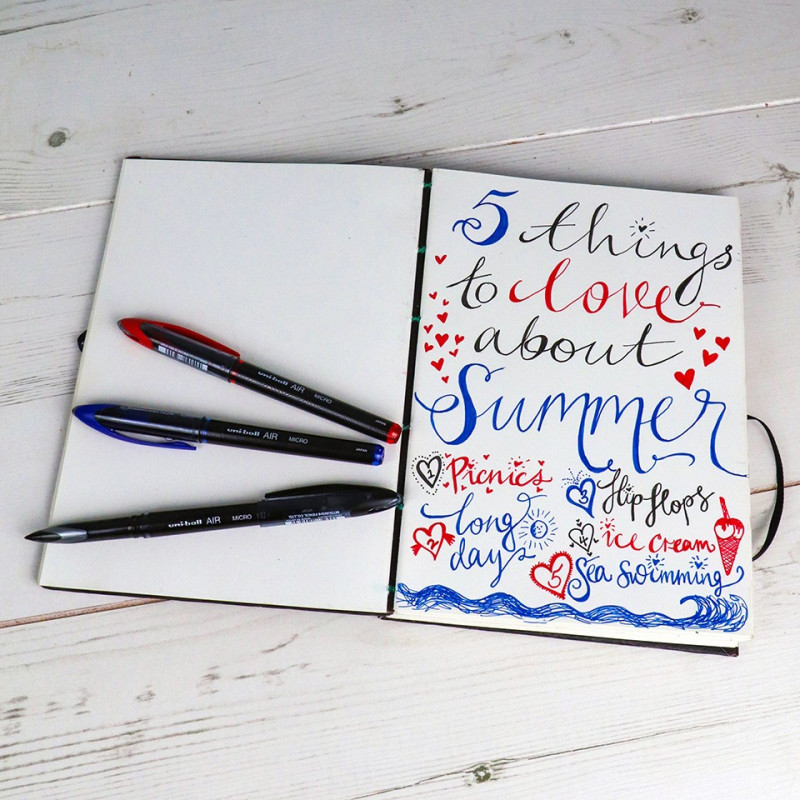 5 things
to love
about
Summer
1 Picnics
2 long days
3 flip flops
4 ice cream
5 Sea Swimming
uni-ball AIR MICRO
uni-ball AIR MICRO
uni-ball AIR MICRO